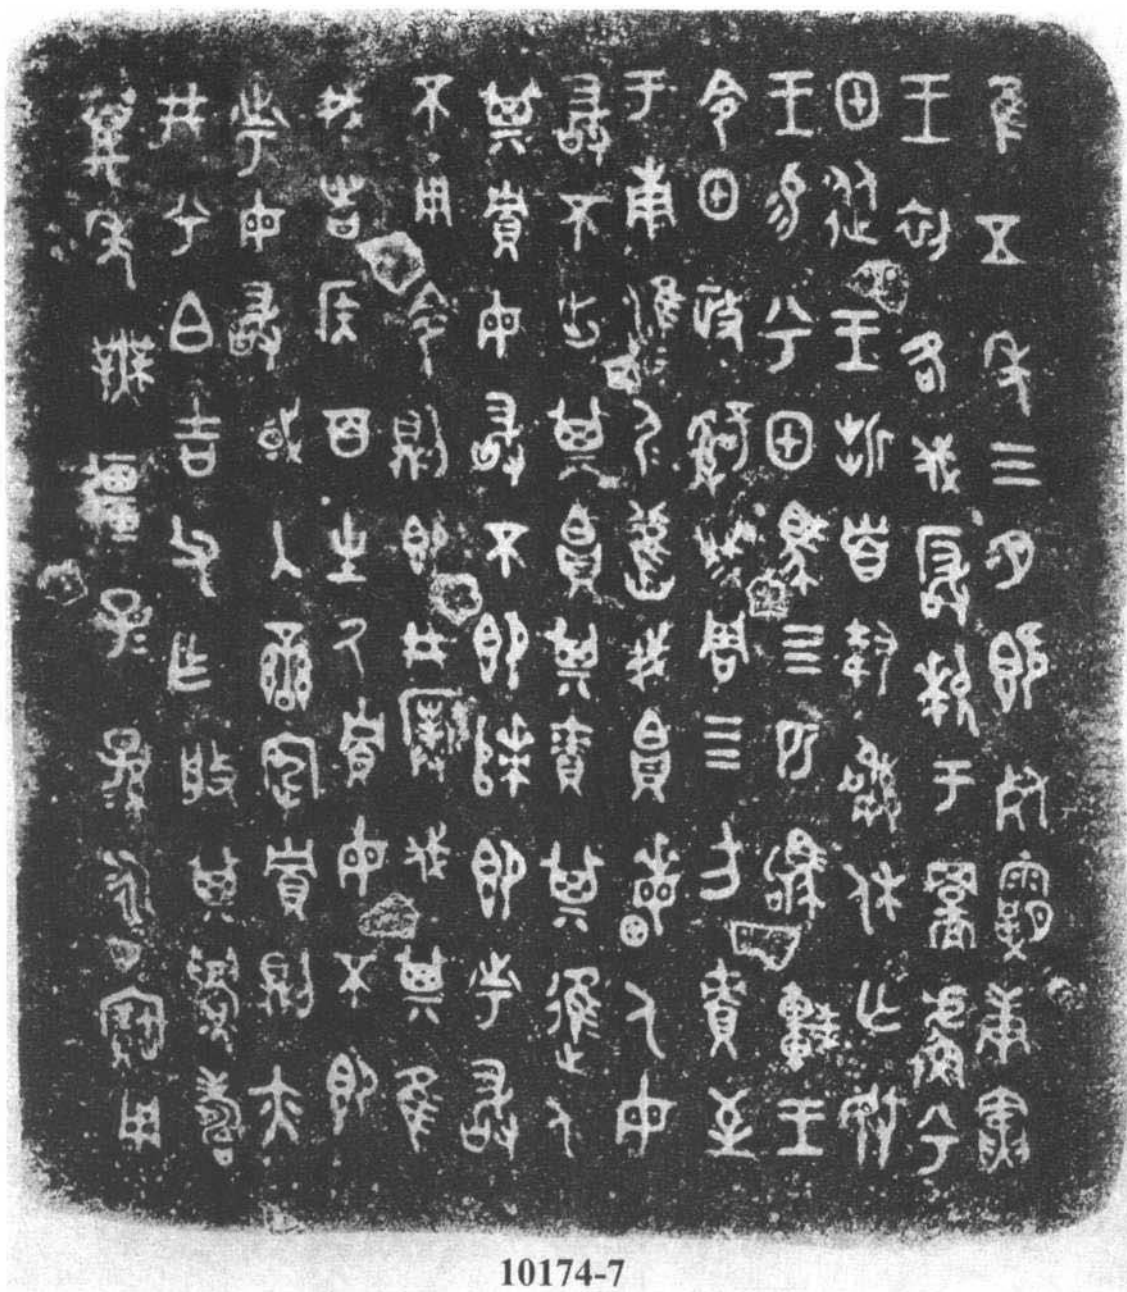 隹五年三月既死霸庚寅
王初各伐玁狁于䣙䖒兮
甲從王折首執訊休亡敃
王易兮甲馬四匹駒車王
令甲政𤔲成周四方責至
于南淮₌尸₌舊我帛畮人毋
敢不出其帛其責其進人
其賈毋敢不即次即市敢
不用令則即井撲伐其隹
我者侯百生氒賈毋不即
市毋敢或入䜌宄賈則亦
井兮白吉父乍般其眉壽
萬年無疆子₌孫₌永寶用
10174-7